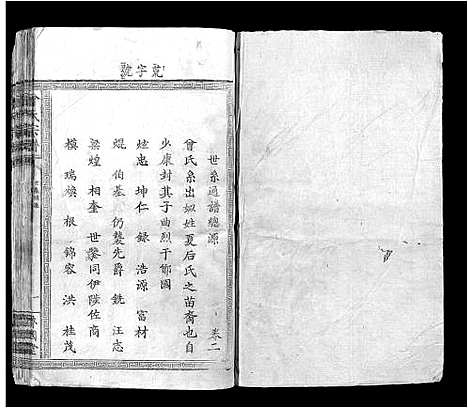 堯字號
世系通譜總源 卷二
曾氏系出姒姓夏后氏之苗裔也自
少康封其子曲烈于鄫國
炫忠 坤仁 録 浩源 富材
焜 伯基 仍襲先爵 銑 汪志
梁煌 相奎 世鑒 同伊陞佐商
模 瑞煥 根 錦容 洪 桂茂